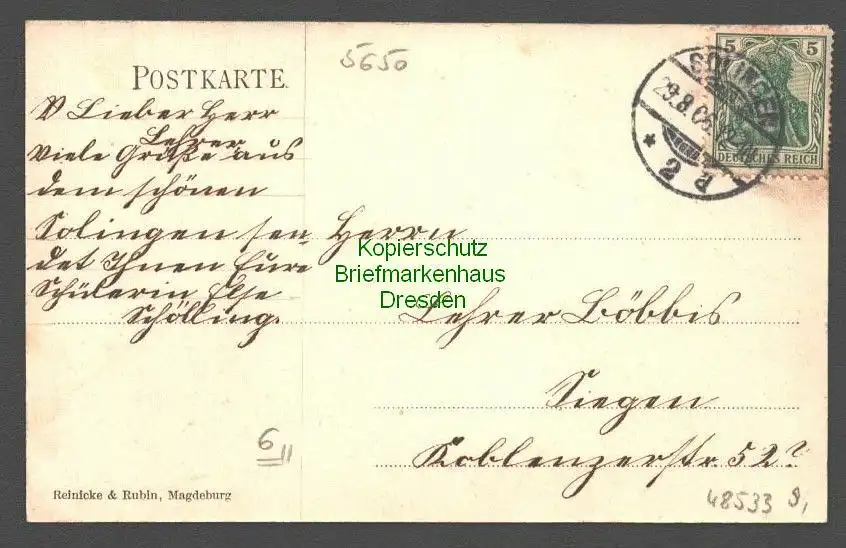 5650
POSTKARTE.
Lieber Herr
Lehrer
Viele Grüße aus
dem schönen
Solingen sen-
det Ihnen Eure
Schülerin Else
Schölling.
SOLINGEN
29.8.06.
* 2 d
5 5
DEUTSCHES REICH
Herrn
Kopierschutz
Briefmarkenhaus
Dresden
Lehrer Böbbis
Siegen
Koblenzerstr 52
6 II
Reinicke & Rubin, Magdeburg
48533